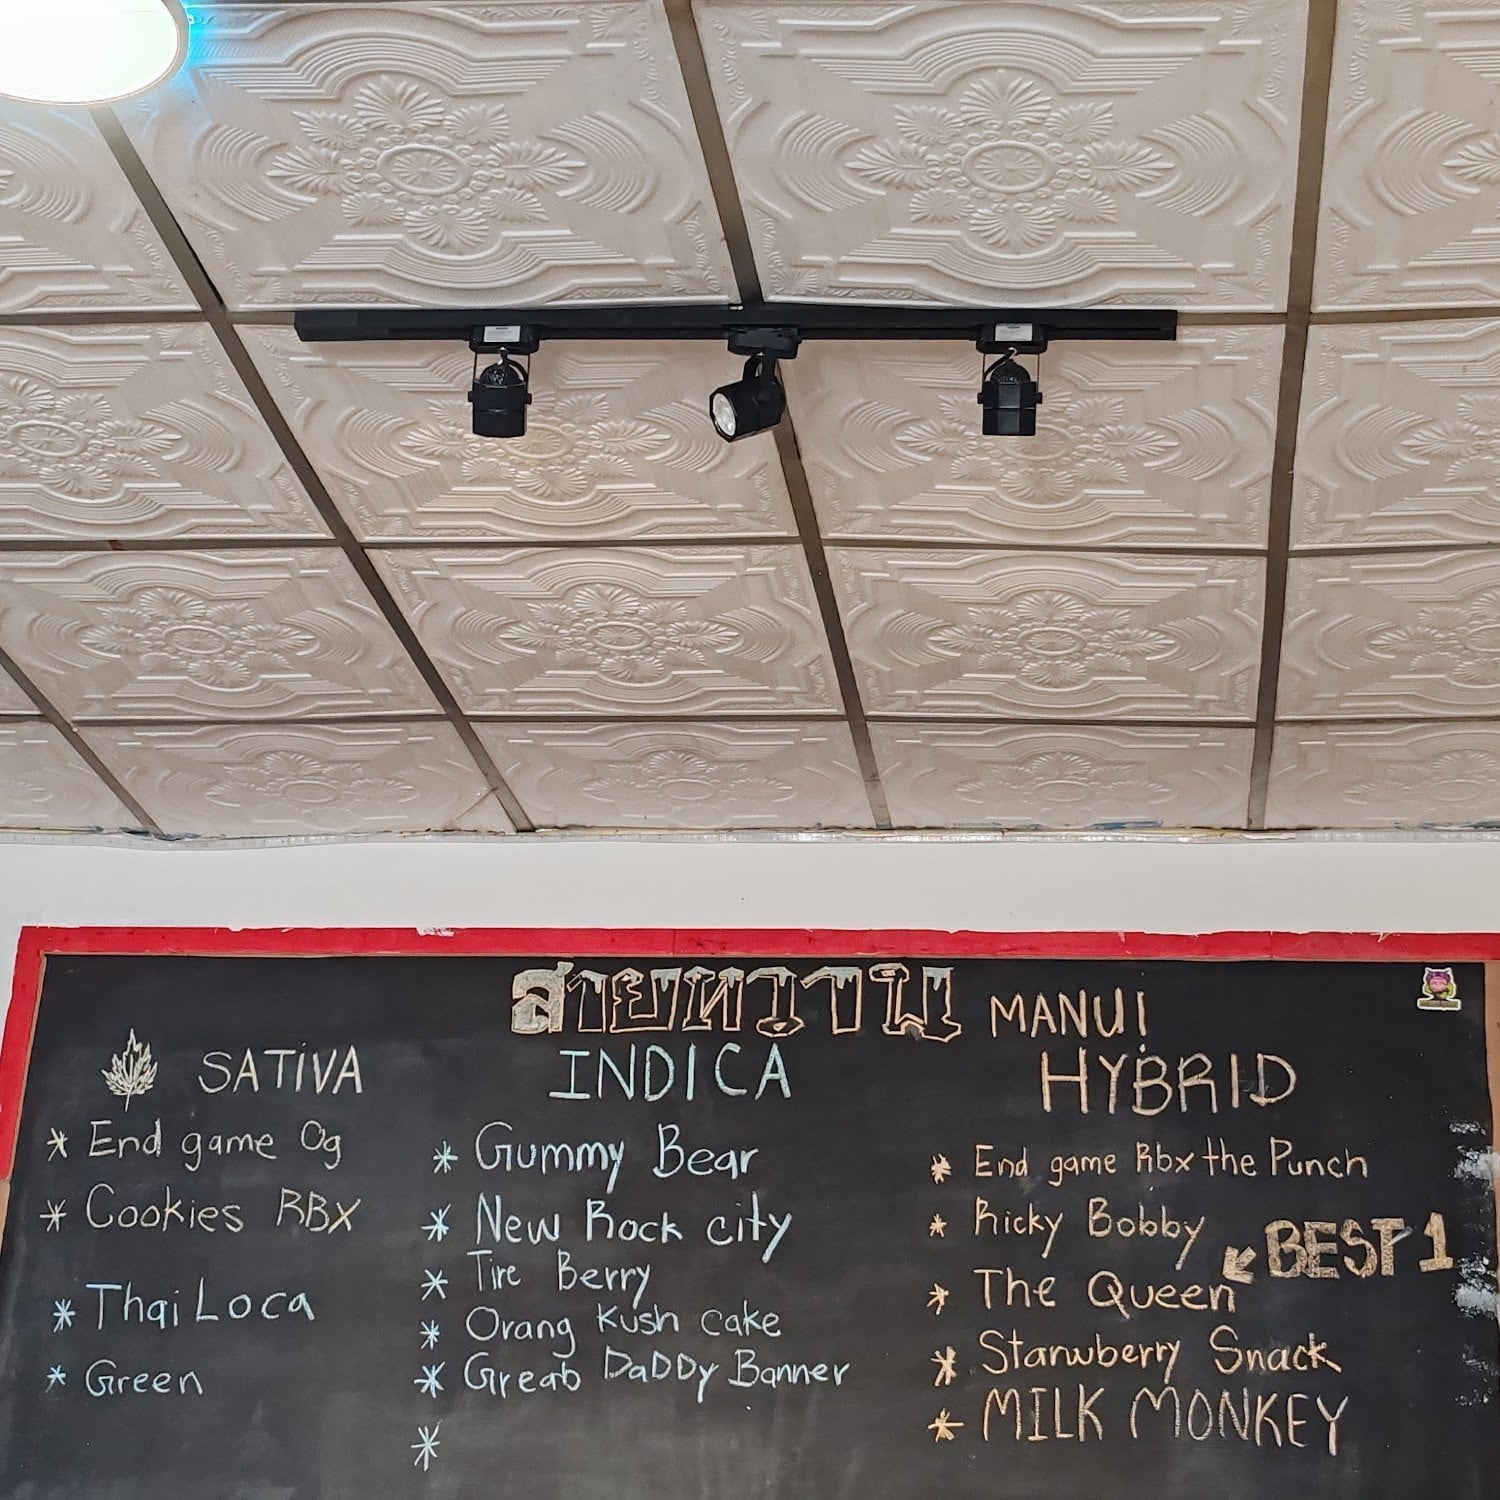 สายหวาน MANUI
SATIVA
* End game Og
* Cookies RBX
* Thai Loca
* Green
INDICA
* Gummy Bear
* New Rock city
* Tire Berry
* Orang Kush cake
* Greab DaDDy Banner
*
HYBRID
* End game Rbx the Punch
* Ricky Bobby
BEST 1
* The Queen
* Starwberry Snack
* MILK MONKEY